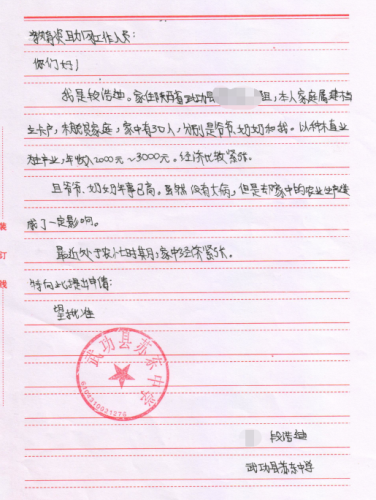 尊敬资助网工作人员:
你们好!
我是段浩灿。家住陕西省武功县 组,本人家庭属建档
立卡户,本就贫家庭,家中有3口人,分别是爷爷奶奶和我。以种植业
为主产业,年收入2000元~3000元。经济比较紧张。
且爷爷、奶奶年事已高。虽然没有大病,但是去除家中的农业生产
成了一定影响。
最近处于农忙时期,家中经济紧张。
特向此提出申请:
望批准
武功县苏东中学
6104310021276
段浩
武功县苏东中学
装
订
线